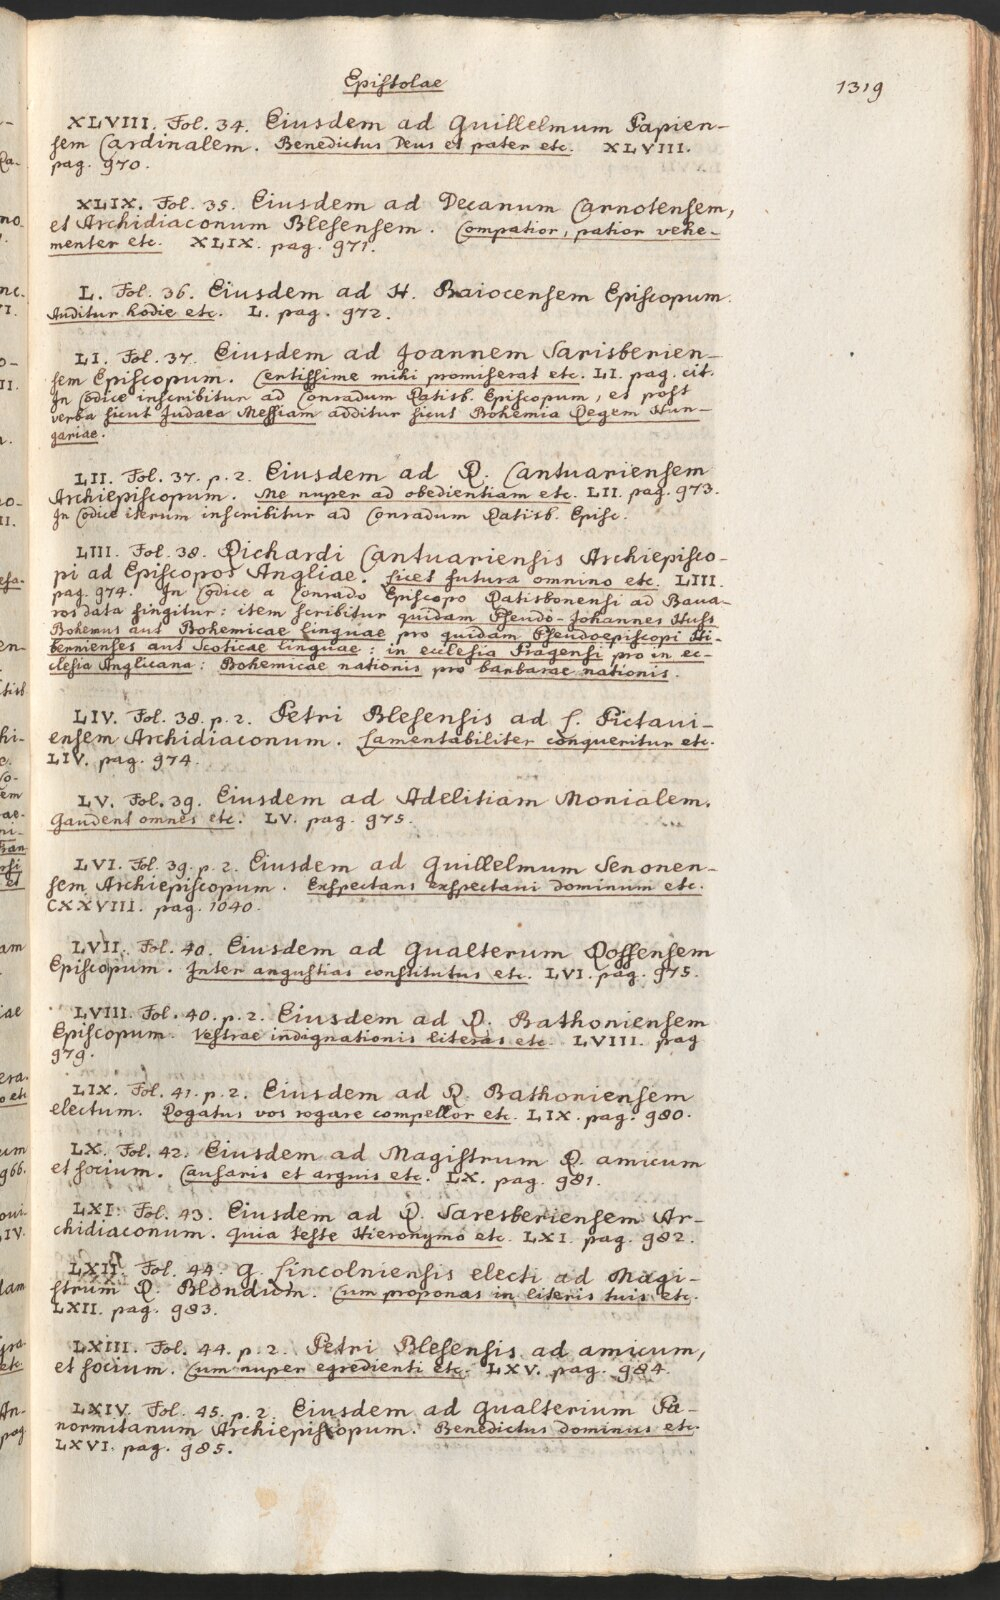 Epistolae
1319
XLVIII. Fol. 34. Eiusdem ad Guillelmum Papien-
sem Cardinalem. Benedictus Deus et pater etc. XLVIII.
pag. 970.
XLIX. Fol. 35. Eiusdem ad Decanum Carnotensem,
et Archidiaconum Blesensem. Compatior, patior vehe-
menter etc. XLIX. pag. 971.
L. Fol. 36. Eiusdem ad H. Baiocensem Episcopum.
Auditur hodie etc. L. pag. 972.
LI. Fol. 37. Eiusdem ad Joannem Sarisberien-
sem Episcopum. Certissime mihi promiserat etc. LI. pag. cit.
In Codice inscribitur ad Conradum Ratisb. Episcopum, et post
verba sicut Judaea Messiam additur sicut Bohemia Regem Hun-
gariae.
LII. Fol. 37. p. 2. Eiusdem ad R. Cantuariensem
Archiepiscopum. Me nuper ad obedientiam etc. LII. pag. 973.
In Codice iterum inscribitur ad Conradum Ratisb. Episc.
LIII. Fol. 38. Richardi Cantuariensis Archiepisco-
pi ad Episcopos Angliae. Licet futura omnino etc. LIII.
pag. 974. In Codice a Conrado Episcopo Ratisbonensi ad Baua-
ros data fingitur: item scribitur quidam Pseudo-Johannes Huss
Bohemus aut Bohemicae linguae pro quidam Pseudoepiscopi Hi-
bernienses aut Scoticae linguae: in ecclesia Pragensi pro in ec-
clesia Anglicana: Bohemicae nationis pro barbarae nationis.
LIV. Fol. 38. p. 2. Petri Blesensis ad S. Pictaui-
ensem Archidiaconum. Lamentabiliter conqueritur etc.
LIV. pag. 974.
LV. Fol. 39. Eiusdem ad Adelitiam Monialem.
Gaudent omnes etc. LV. pag. 975.
LVI. Fol. 39. p. 2. Eiusdem ad Guillelmum Senonen-
sem Archiepiscopum. Exspectans exspectaui dominum etc.
CXXVIII. pag. 1040.
LVII. Fol. 40. Eiusdem ad Gualterum Roffensem
Episcopum. Inter angustias constitutus etc. LVI. pag. 975.
LVIII. Fol. 40. p. 2. Eiusdem ad R. Bathoniensem
Episcopum. Vestrae indignationis literas etc. LVIII. pag
979.
LIX. Fol. 41. p. 2. Eiusdem ad R. Bathoniensem
electum. Rogatus vos rogare compellor etc. LIX. pag. 980.
LX. Fol. 42. Eiusdem ad Magistrum R. amicum
et socium. Causaris et arguis etc. LX. pag. 981.
LXI. Fol. 43. Eiusdem ad R. Saresberiensem Ar-
chidiaconum. Quia teste Hieronymo etc. LXI. pag. 982.
LXII. Fol. 44. G. Lincolniensis electi ad Magi-
strum R. Blondum. Cum proponas in literis tuis etc.
LXII. pag. 983.
LXIII. Fol. 44. p. 2. Petri Blesensis ad amicum,
et socium. Cum nuper egredienti etc. LXV. pag. 984.
LXIV. Fol. 45. p. 2. Eiusdem ad Gualterium Pa-
normitanum Archiepiscopum. Benedictus dominus etc.
LXVI. pag. 985.